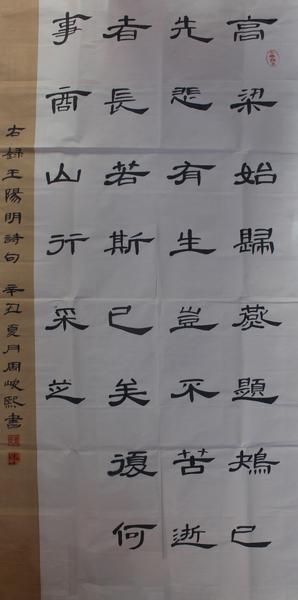 高梁始歸燕題鴂已
先悲有生豈不苦逝
者長若斯已矣復何
事商山行采芝
右録王陽明詩句 辛丑夏月周峻熙書